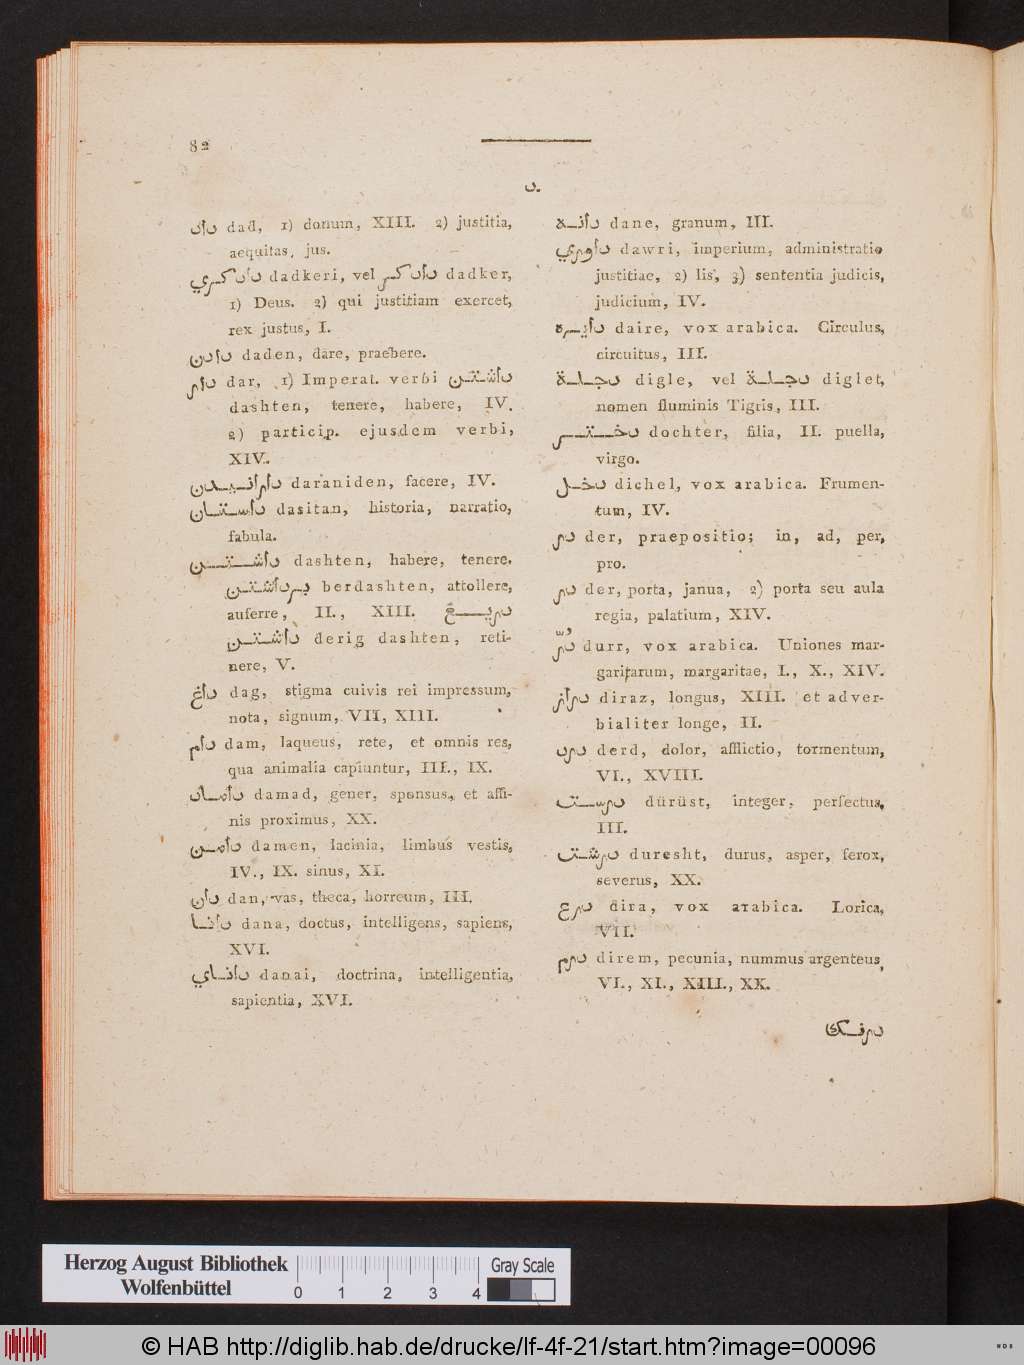 82
د.
داد dad, 1) donum, XIII. 2) justitia,
aequitas, jus.
دادكري dadkeri, vel دادكر dadker,
1) Deus. 2) qui justitiam exercet,
rex justus, I.
دادن daden, dare, praebere.
دار dar, 1) Imperat. verbi داشتن
dashten, tenere, habere, IV.
2) particip. ejusdem verbi,
XIV.
دارانيدن daraniden, facere, IV.
داستان dasitan, historia, narratio,
fabula.
داشتن dashten, habere, tenere.
برداشتن berdashten, attollere,
auferre, II., XIII. دريغ
داشتن derig dashten, reti-
nere, V.
داغ dag, stigma cuivis rei impressum,
nota, signum, VII, XIII.
دام dam, laqueus, rete, et omnis res,
qua animalia capiuntur, III., IX.
داماد damad, gener, sponsus, et affi-
nis proximus, XX.
دامن damen, lacinia, limbus vestis,
IV., IX. sinus, XI.
دان dan, vas, theca, horreum, III.
دانا dana, doctus, intelligens, sapiens,
XVI.
داناي danai, doctrina, intelligentia,
sapientia, XVI.
دانه dane, granum, III.
داوري dawri, imperium, administratio
justitiae, 2) lis, 3) sententia judicis,
judicium, IV.
دايره daire, vox arabica. Circulus,
circuitus, III.
دجله digle, vel دجلة diglet,
nomen fluminis Tigris, III.
دختر dochter, filia, II. puella,
virgo.
دخل dichel, vox arabica. Frumen-
tum, IV.
در der, praepositio; in, ad, per,
pro.
در der, porta, janua, 2) porta seu aula
regia, palatium, XIV.
دُرّ durr, vox arabica. Uniones mar-
garitarum, margaritae, I., X., XIV.
دراز diraz, longus, XIII. et adver-
bialiter longe, II.
درد derd, dolor, afflictio, tormentum,
VI., XVIII.
درست dürüst, integer, perfectus,
III.
درشت duresht, durus, asper, ferox,
severus, XX.
درع dira, vox arabica. Lorica,
VII.
درم direm, pecunia, nummus argenteus,
VI., XI., XIII., XX.
درفك
Herzog August Bibliothek
Wolfenbüttel
0 1 2 3 4
Gray Scale
© HAB http://diglib.hab.de/drucke/lf-4f-21/start.htm?image=00096